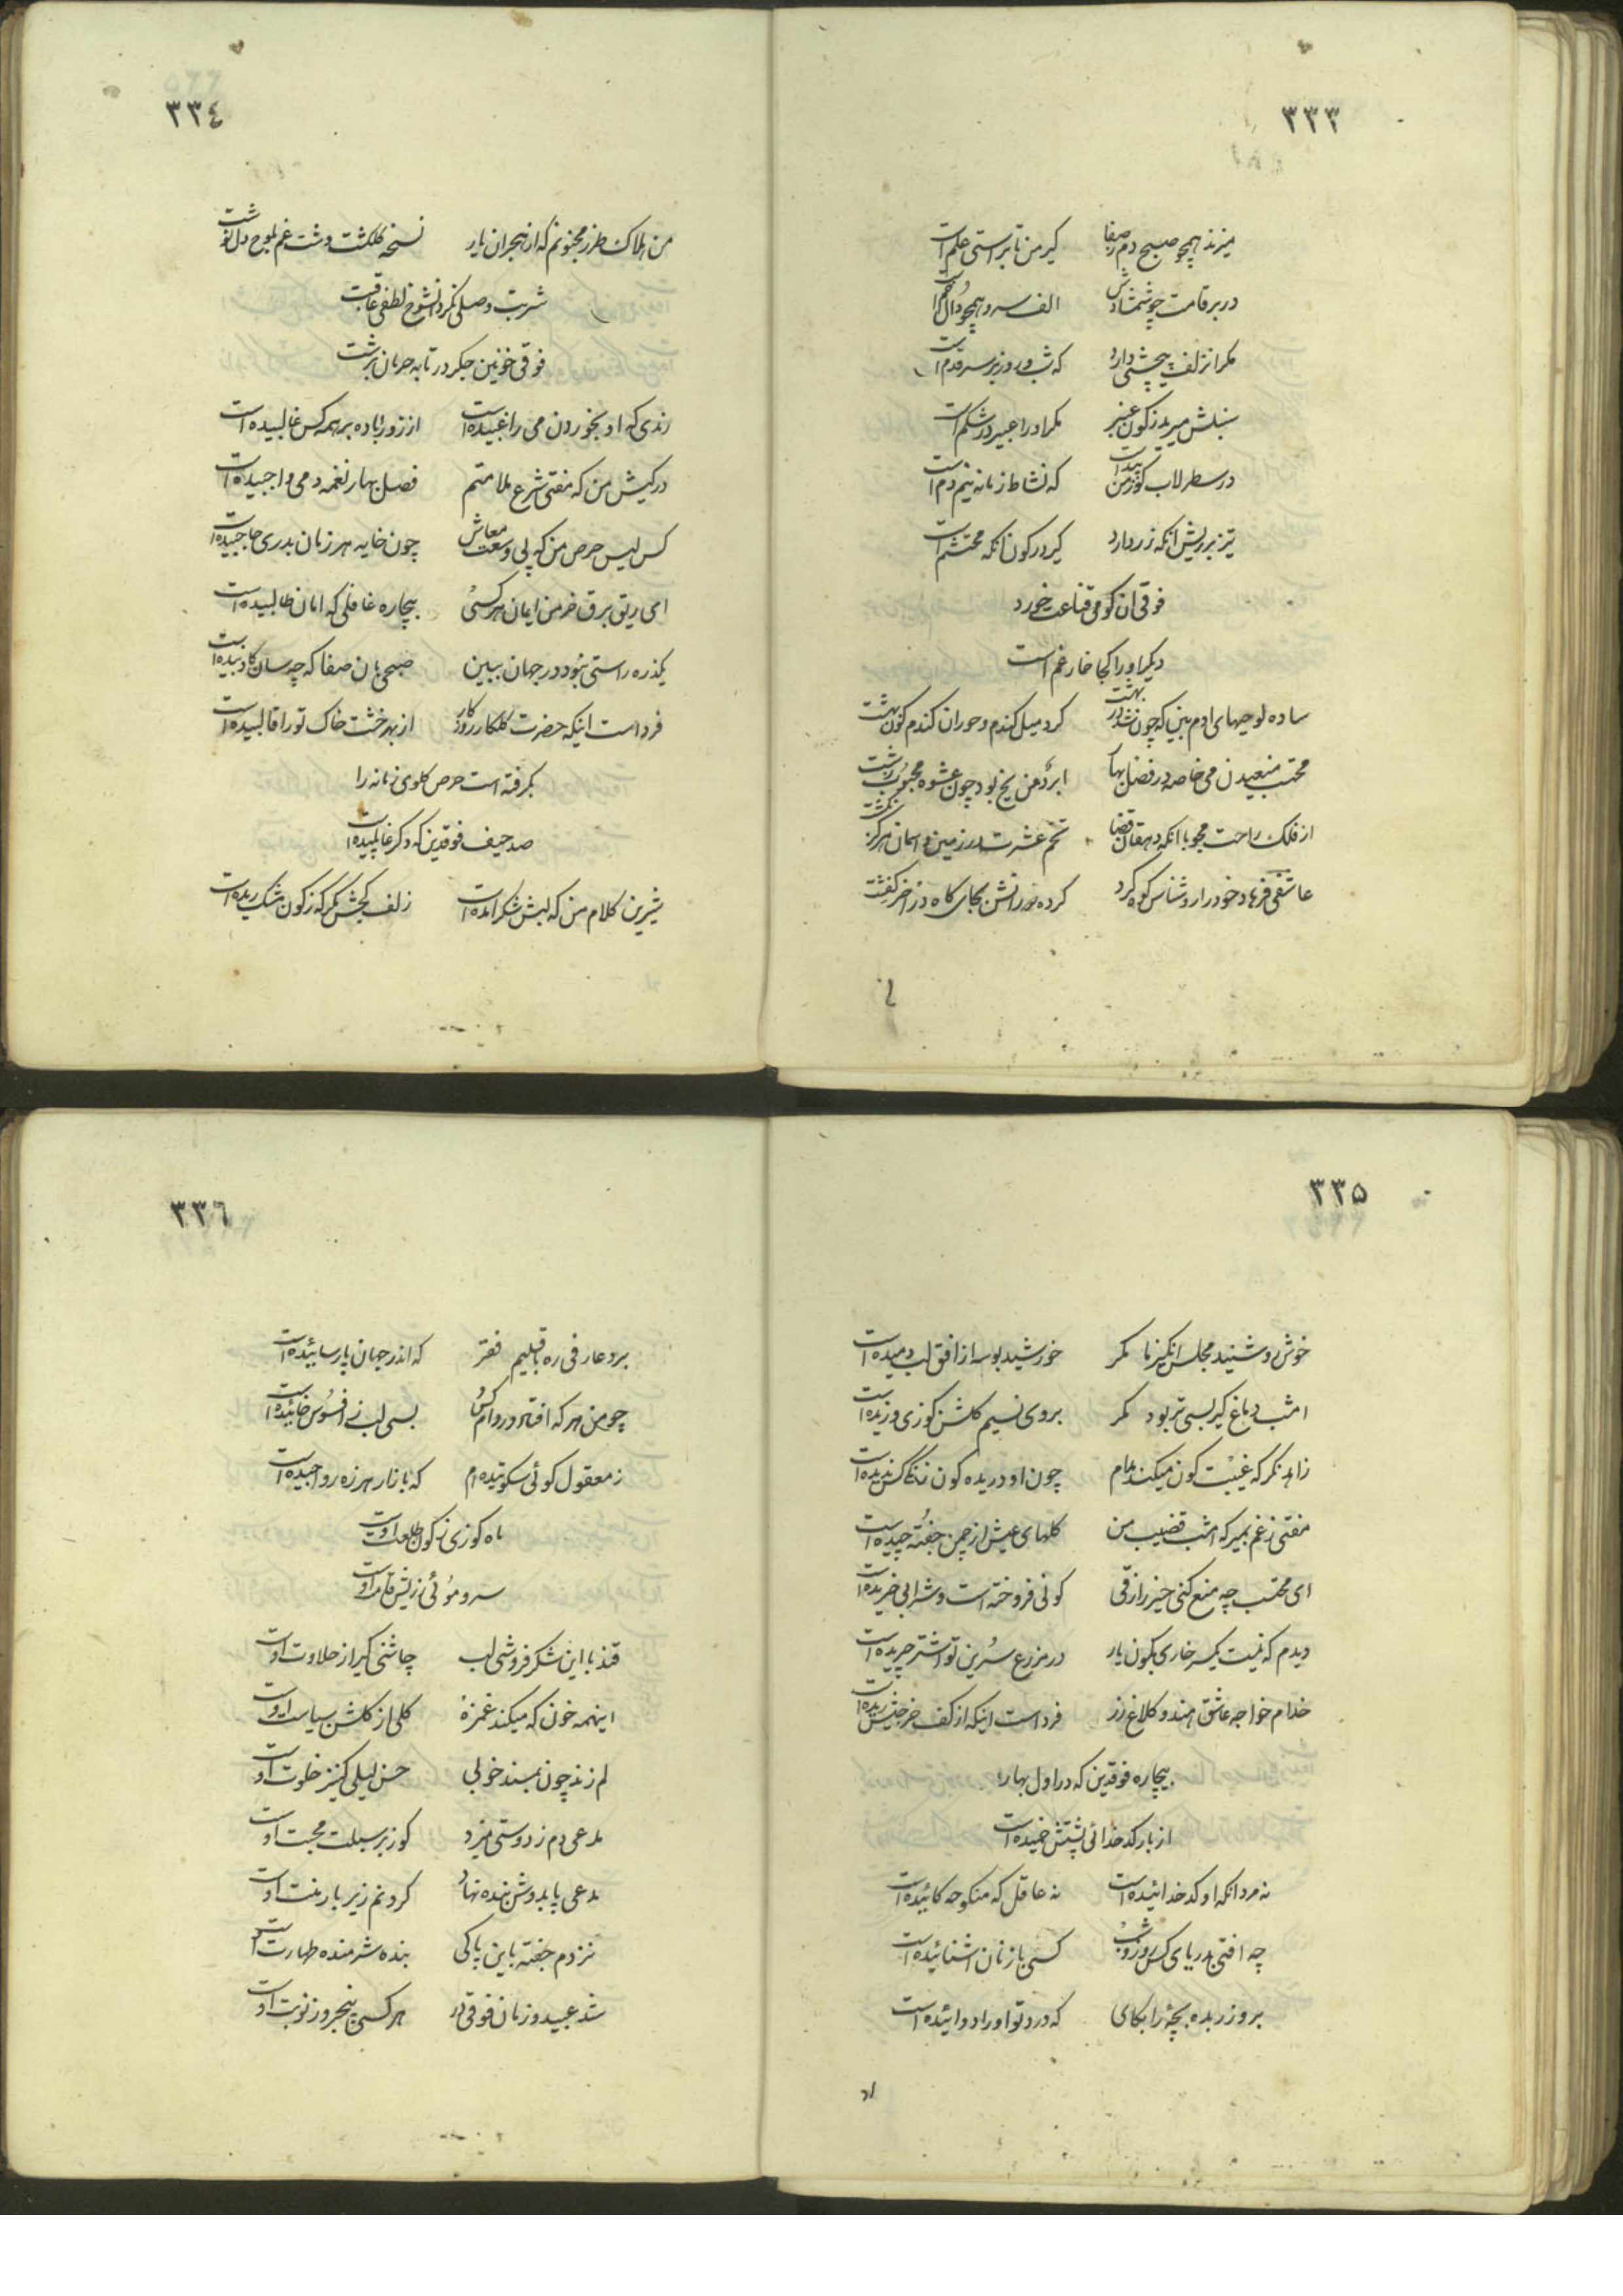 ۳۳۳
میزند همچو صبح دم ز صفا کیر من تا براستی علم است
در بر قامت چو شمشادش الف سرو همچو دال خم است
مگر از زلف پیچشی دارد که شب و روز بر سر قدم است
سنبلش میرید ز کون عنبر مگر او را عبیر در شکم است
در سطرلاب کوز من پیداست که نشاط زمانه نیم دم است
تیز بر ریش آنکه زر دارد کیر در کون آنکه محتشم است
فوقی آن کو می قناعت خورد
دیگر او را کجا خار غم است
ساده لوحیهای ادم بین که چون شد در بهشت کرد میل کندم و حوران کندم کون بهشت
محتسب منعیدن می خاصه در فصل بهار ابرد من یخ بود چون عشوه محبوب زشت
از فلک راحت مجو با آنکه دهقان قضا تخم عشرت در زمین و اسمان هرکز نکشت
عاشقی فرهاد خود را روشناس کوه کرد کرده در رانش بجای کاه در اخر
۳۳٤
من هلاک طرز مجنونم که از هجران یار نسخه کلکشت دشت غم بلوح دل نوشت
شربت وصلی نکرد آنشوخ لطفی عاقبت
فوقی خونین جکر در تابه حرمان برشت
رندی که او بخوردن می راغبیده است از زور باده بر همه کس غالبیده است
در کیش من که مفتی شرع ملامتم فصل بهار نغمه و می واجبیده است
کس لیس حرص من که پی وسعت معاش چون خایه هر زمان بدری حاجبیده است
ای ریق برق خرمن ایمان هر کسی بیچاره غافلی که امان طالبیده است
یکذره راستی نبود در جهان ببین صبحی بان صفا که چه سان کاذبیده است
فرداست اینکه حضرت کلکار روزکار از بهر خشت خاک تو را قالبیده است
بکرفته است حرص کلوی زمانه را
صد حیف فوقدین که دکر غایبیده است
شیرین کلام من که لبش شکر امده است زلف کجش نکر که ز کون مشک ریده است
۳۳۵
خوش روشنید مجلس انکیز ما مکر خورشید بوسه از افق لب دمیده است
امشب دماغ کیر بسی تر بود مکر بروی نسیم کلشن کوزی وزیده است
زاهد نکر که غیبت کون میکند مدام چون او دریده کون زنکا کس ندیده است
مفتی ز غم بمیر که امشب قضیب من کلهای عیش از چمن جفته چیده است
ای محتسب چه منع کنی حیز رازقی کونی فروخته است و شرابی خریده است
دیدم که نیست یکسر خاری بکون یار در مزرع سرین تو اشتر چریده است
خدام خواجه عاشق هند و کلاغ زر فرداست اینکه از کف خرجیش پریده است
بیچاره فوقدین که در اول بهار
از بار کدخدائی پشتش خمیده است
نه مرد انکه او کدخدائیده است نه عاقل که منکوحه کائیده است
چه افتی بدریای کس روز و شب کسی با زنان اشنائیده است
برو زر بده بچهٔ را بکای که درد تو او را دوائیده است
۳۳٦
برد عارفی ره باقلیم فقر که اندر جهان پارسائیده است
چو من هر که افتاد در دام کس بسی لب ز افسوس خائیده است
ز معقول کوئی سکوتیده ام که بازار هرزه رواجیده است
ماه کوزی ز کون طلعت اوست
سرو موئی ز ریش قامت اوست
قند با این شکر فروشی لب چاشنی کیر از حلاوت اوست
اینهمه خون که میکند غمزه کلی از کلشن سیاست اوست
لم زند چون بمسند خوبی حسن لیلی کنیز خلوت اوست
مدعی دم ز دوستی میزد کوز بر سبلت محبت اوست
مدعی پا بدوش بنده نهاد کردنم زیر بار منت اوست
نزدم جفته باین پاکی بنده شرمنده طهارت اوست
شد عبید و زمان فوقی در هر کسی پنجروز نوبت اوست